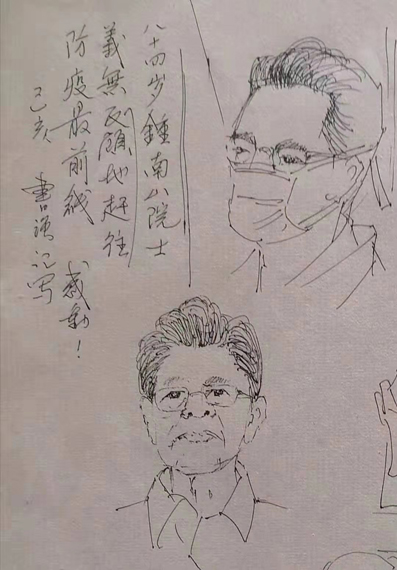 八十四岁鍾南山院士
義無反顧地赶往
防疫最前线 感動！
己亥 書 记写